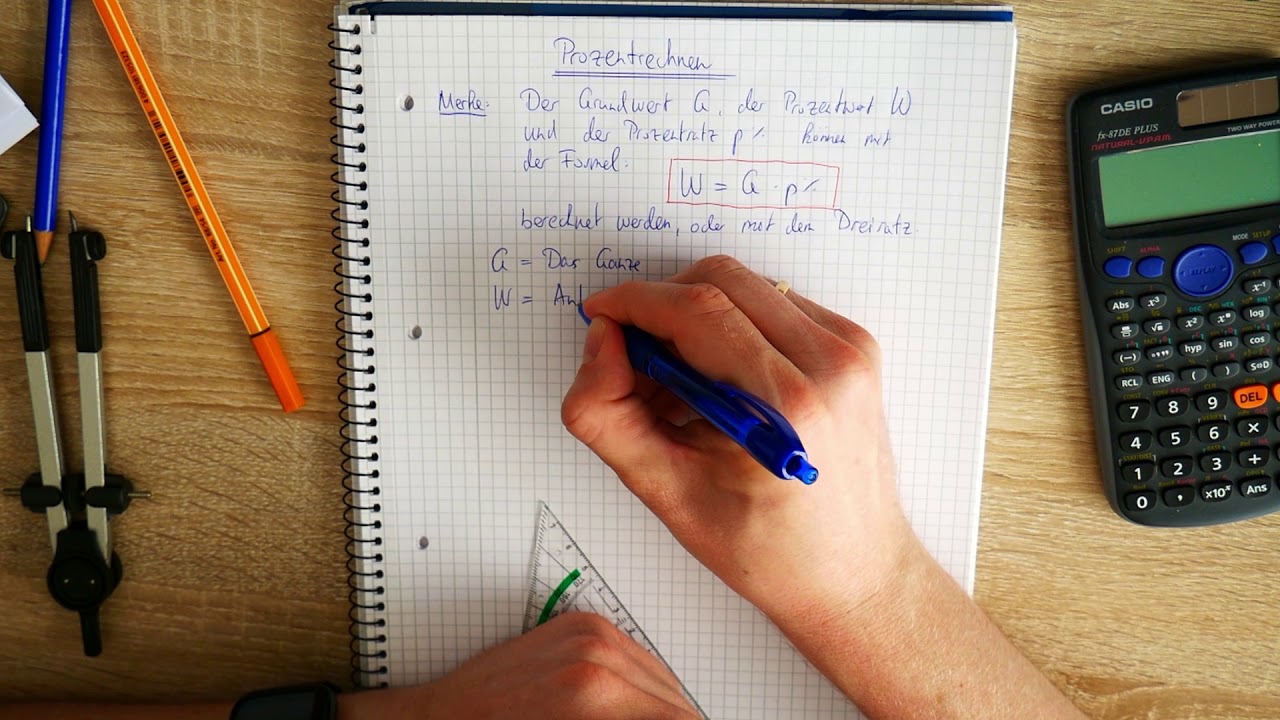 Prozentrechnen
Merke: Der Grundwert G, der Prozentwert W
und der Prozentsatz p% können mit
der Formel:
W = G · p%
berechnet werden, oder mit dem Dreisatz.
G = Das Ganze
W = Ant
CASIO
fx-87DE PLUS
NATURAL-V.P.A.M.
TWO WAY POWER
SHIFT ALPHA MODE SETUP
REPLAY
Abs x³ x⁻¹
√ x² log
(−) °''' hyp sin cos
RCL ENG ( ) S⇔D
7 8 9 DEL
4 5 6 ×
1 2 3 +
0 , ×10ˣ Ans